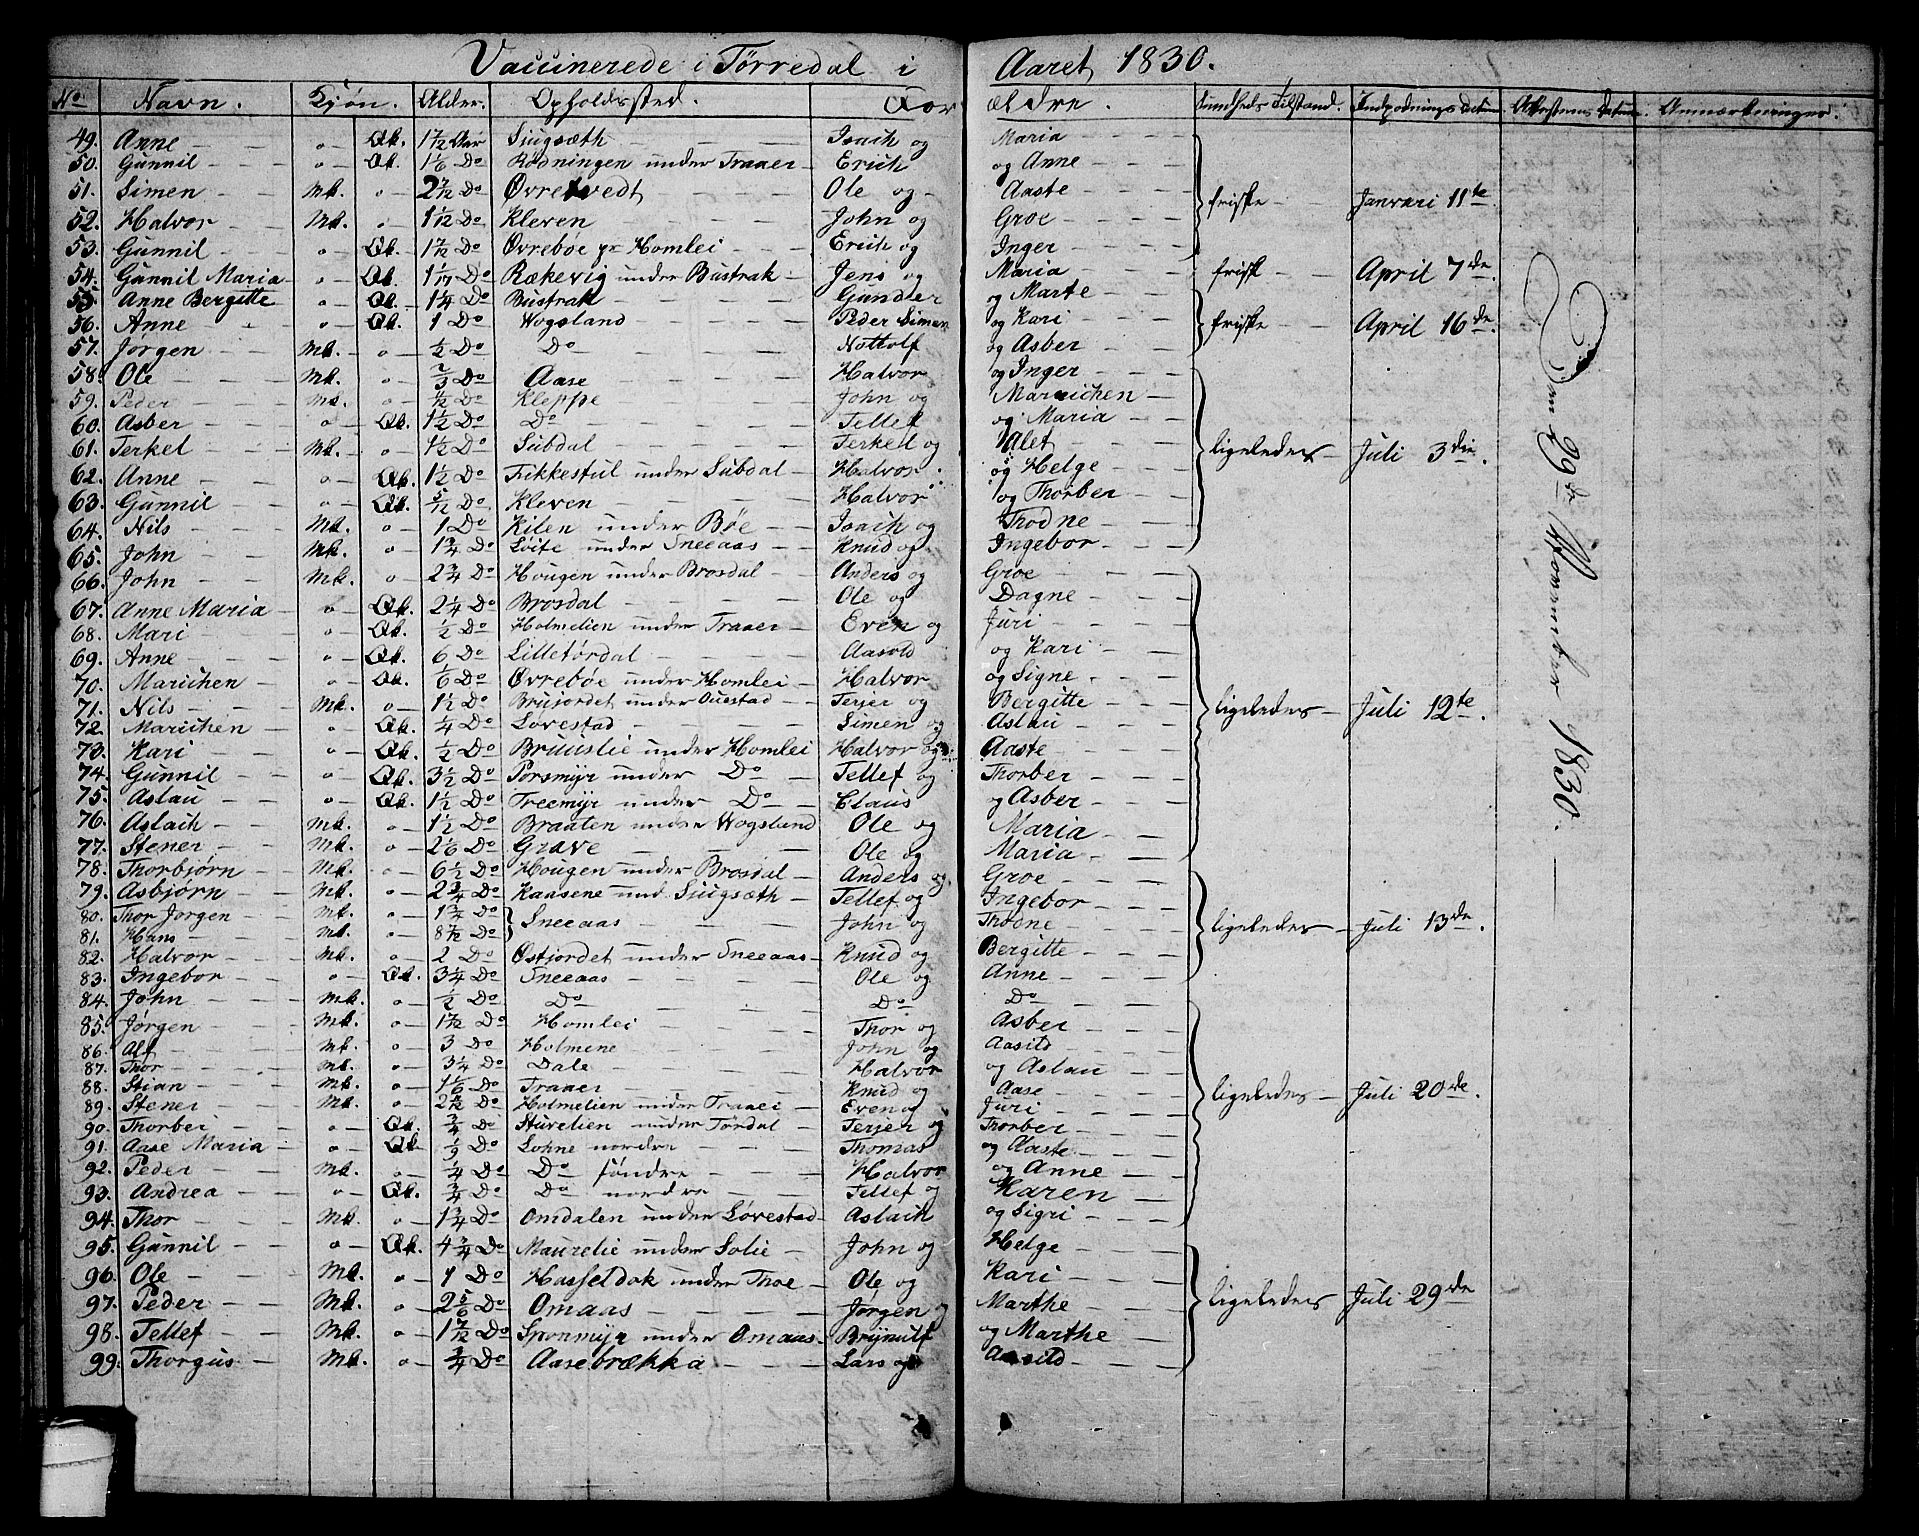 Vaccinerede i Tørredal i Aaret 1830.
No Navn. Kjøn. Alder. Opholdssted. For ældre. Sundheds Tilstand. Indpodnings Datum Attestens Datum. Anmærkninger.
49. Anne Qk. 1 7/12 Aar Siugsæth Isach og Maria
50. Gunnil Qk. 1 1/6 Do Rødningen under Traaer Erich og Anne
51. Simen Mk. Do Øvretvedt Ole og Aaste friske Januari 11te
52. Halvor Mk. 1 1/12 Do Kleven John og Groe
53. Gunnil Qk. 1 7/12 Do Øvreboe pr Homlei Erich og Inger
54. Gunnil Maria Qk. Do Rækevig under Bustrak Jens og Maria friske April 7de
55. Anne Bergitte Qk. 1 1/4 Do Bustrak Gunder og Marte
56. Anne Qk. 1 Do Wogsland Peder Simen og Kari friske April 16de.
57. Jørgen Mk. 1/2 Do Do Nottolf og Asber
58. Ole Mk. 2/3 Do Aase Halvor og Inger
59. Peder Mk. Do Kleppe John og Marichen
60. Asber Qk. 1 1/2 Do Do Tellef og Maria
61. Terkel Mk. 1 1/2 Do Subdal Terkel og Alet ligeledes Juli 3die.
62. Anne Qk. 1 1/2 Do Tikkestul under Subdal Halvor og Helge
63. Gunnil Qk. 5/12 Do Kleven Halvor og Thorber
64. Nils Mk. 1 Do Kilen under Bøe Isach og Trodne
65. John Mk. 1 3/4 Do Løite under Sneeaas Knud og Ingebor
66. John Mk. 2 3/4 Do Hougen under Brosdal Anders og Groe
67. Anne Maria Qk. 2 1/4 Do Brosdal Ole og Dagne
68. Mari Qk. 1/2 Do Holmelien under Traaer Even og Juri
69. Anne Qk. 6 Do Lilletørdal Aasold og Kari
70. Marichen Qk. 1/6 Do Øvreboe under Homlei Halvor og Signe
71. Nils Mk. 1 1/2 Do Brujordet under Ouestad Terjer og Bergitte ligeledes Juli 12te.
72. Marichen Qk. 1/4 Do Løvestad Simen og Aslau
73. Kari Qk. 1/2 Do Bruuslie under Homlei Halvor og Aaste
74. Gunnil Qk. 3 1/2 Do Porsmyr under Do Tellef og Thorber
75. Aslau Qk. 1 1/2 Do Treemyr under Do Claus og Asber
76. Aslach Mk. 1 1/2 Do Braaten under Wogsland Ole og Maria
77. Stener Mk. 2 1/6 Do Grave Ole og Maria
78. Thorbjørn Mk. 6 1/2 Do Hougen under Brosdal Anders og Groe
79. Asbjørn Mk. 2 3/4 Do Kaasene und Siugsæth Tellef og Ingebor
80. Thor Jørgen Mk. 1 3/4 Do Sneeaas John og Thodne ligeledes Juli 13de.
81. Hans Mk. Do
82. Halvor Mk. 2 Do Østjordet under Sneeaas Knud og Bergitte
83. Ingebor Qk. 3 1/4 Do Sneeaas Ole og Anne
84. John Mk. 1/2 Do Do Do Do
85. Jørgen Mk. 1 7/12 Do Homlei Thor og Asber
86. Alf Mk. 3 Do Holmene John og Aasild
87. Thor Mk. 3 1/4 Do Dale Halvor og Aslau
88. Stian Mk. 1 1/6 Do Traaer Knud og Aase
89. Stener Mk. Do Holmelien under Traaer Even og Juri ligeledes Juli 20de.
90. Thorber Qk. 3/4 Do Sturelien under Tørdal Terjer og Thorber
91. Aase Maria Qk. Do Lohne nordre Thomas og Aaste
92. Peder Mk. 1/4 Do Do søndre Halvor og Anne
93. Andrea Qk. 3/4 Do Do nordre Tellef og Karen
94. Thor Mk. 1 3/4 Do Omdalen under Løvestad Aslach og Sigri
95. Gunnil Qk. 4 3/4 Do Maurelie under Solie John og Helge
96. Ole Mk. 1 Do Hasseldok under Thoe Ole og Kari
97. Peder Mk. 2 5/6 Do Omaas Jørgen og Marthe ligeledes Juli 29de
98. Tellef Mk. 1 7/12 Do Sponmyr under Omaas Brynulf og Marthe
99. Thorgus Mk. 3/4 Do Aasebrækka Lars og Aasild
Den 29de November 1830.